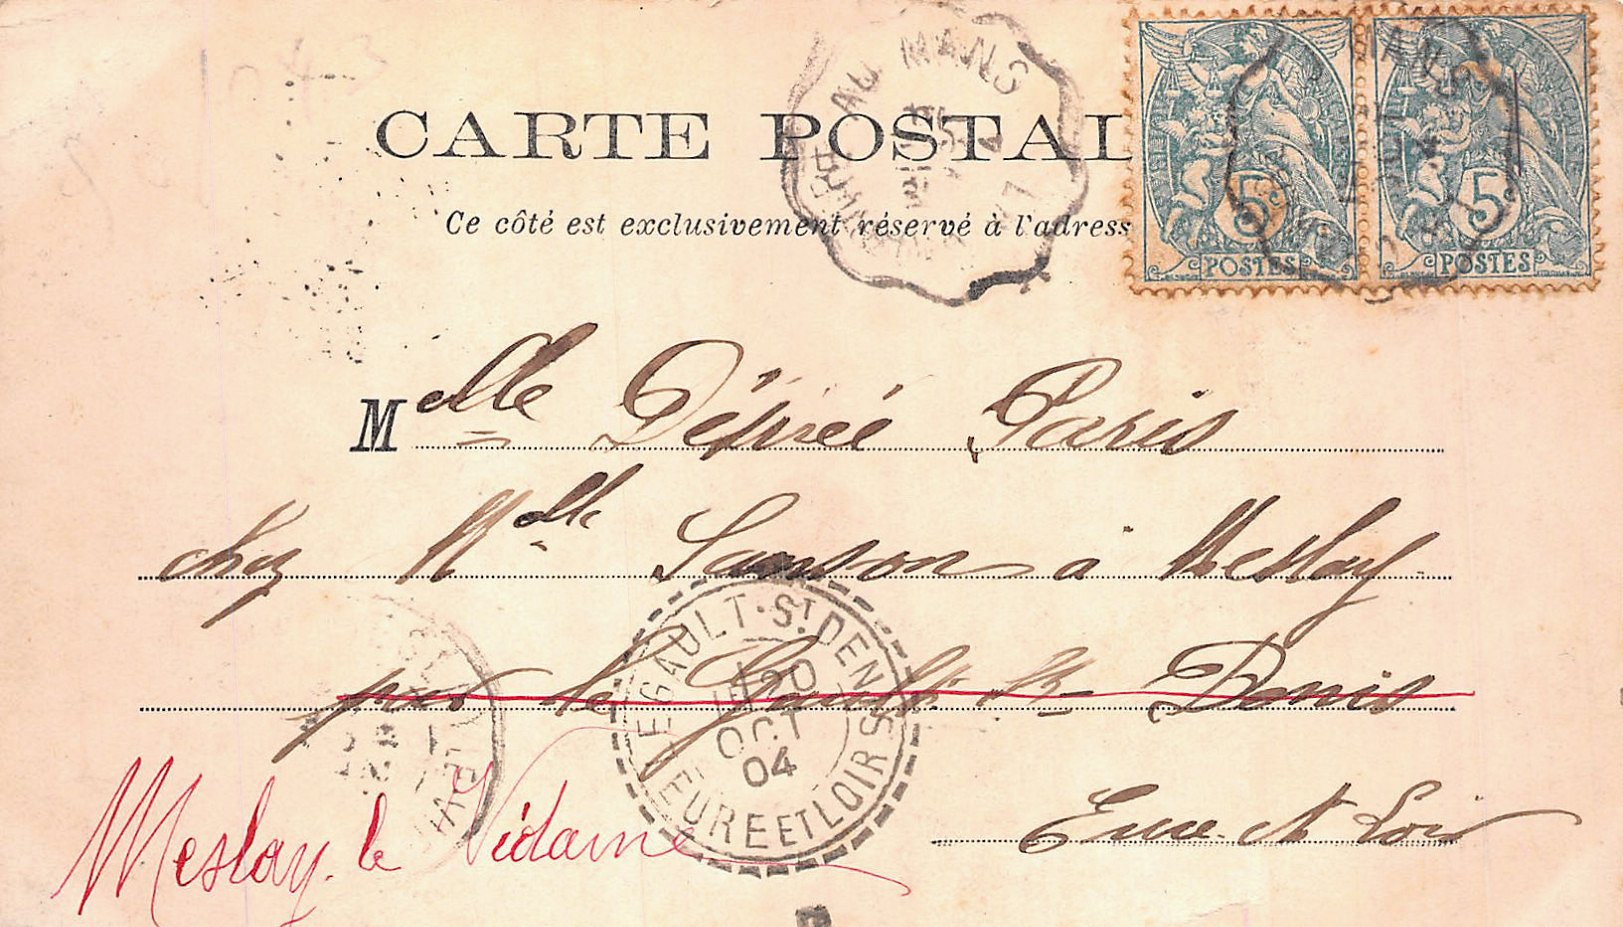 CARTE POSTAL
Ce côté est exclusivement réservé à l'adress
AU MANS
MANS
5c
POSTES
5c
POSTES
Melle Désirée Paris
chez Melle Sanson à Meslay
par le Gault St Denis
Eure et Loir
Meslay le Vidame
LEGAULT-ST DENIS
20
OCT
04
EURE ET LOIR